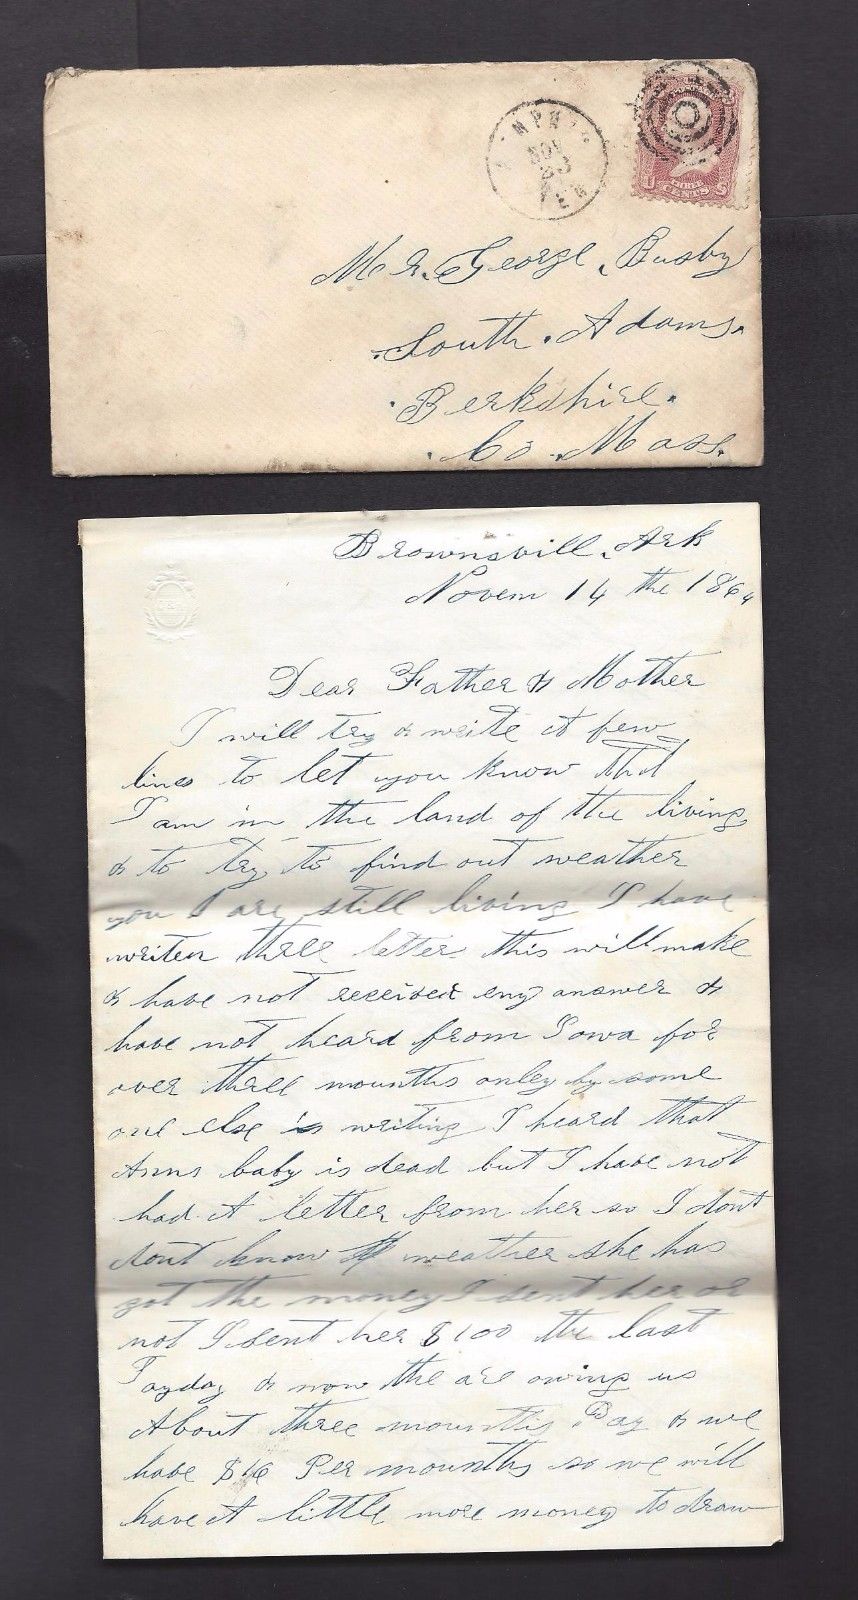 MEMPHIS
NOV
TEN
THREE
CENTS
Mr. George Busby
South Adams
Berkshire
Co. Mass.
Brownsvill. Ark
Novem 14 the 1864
Dear Father & Mother
I will try & write A few
lines to let you know that
I am in the land of the living
& to try to find out weather
you are still living I have
writen three letter this will make
& have not received eny answer &
have not heard from Iowa for
over three mounths onley by some
one else is writing I heard that
Anns baby is dead but I have not
had A letter from her so I dont
dont know weather she has
got the money I sent her or
not I sent her $100 the last
Payday & now the are owing us
About three mounths Pay & we
have $16 Per mounths so we will
have A little more money to draw